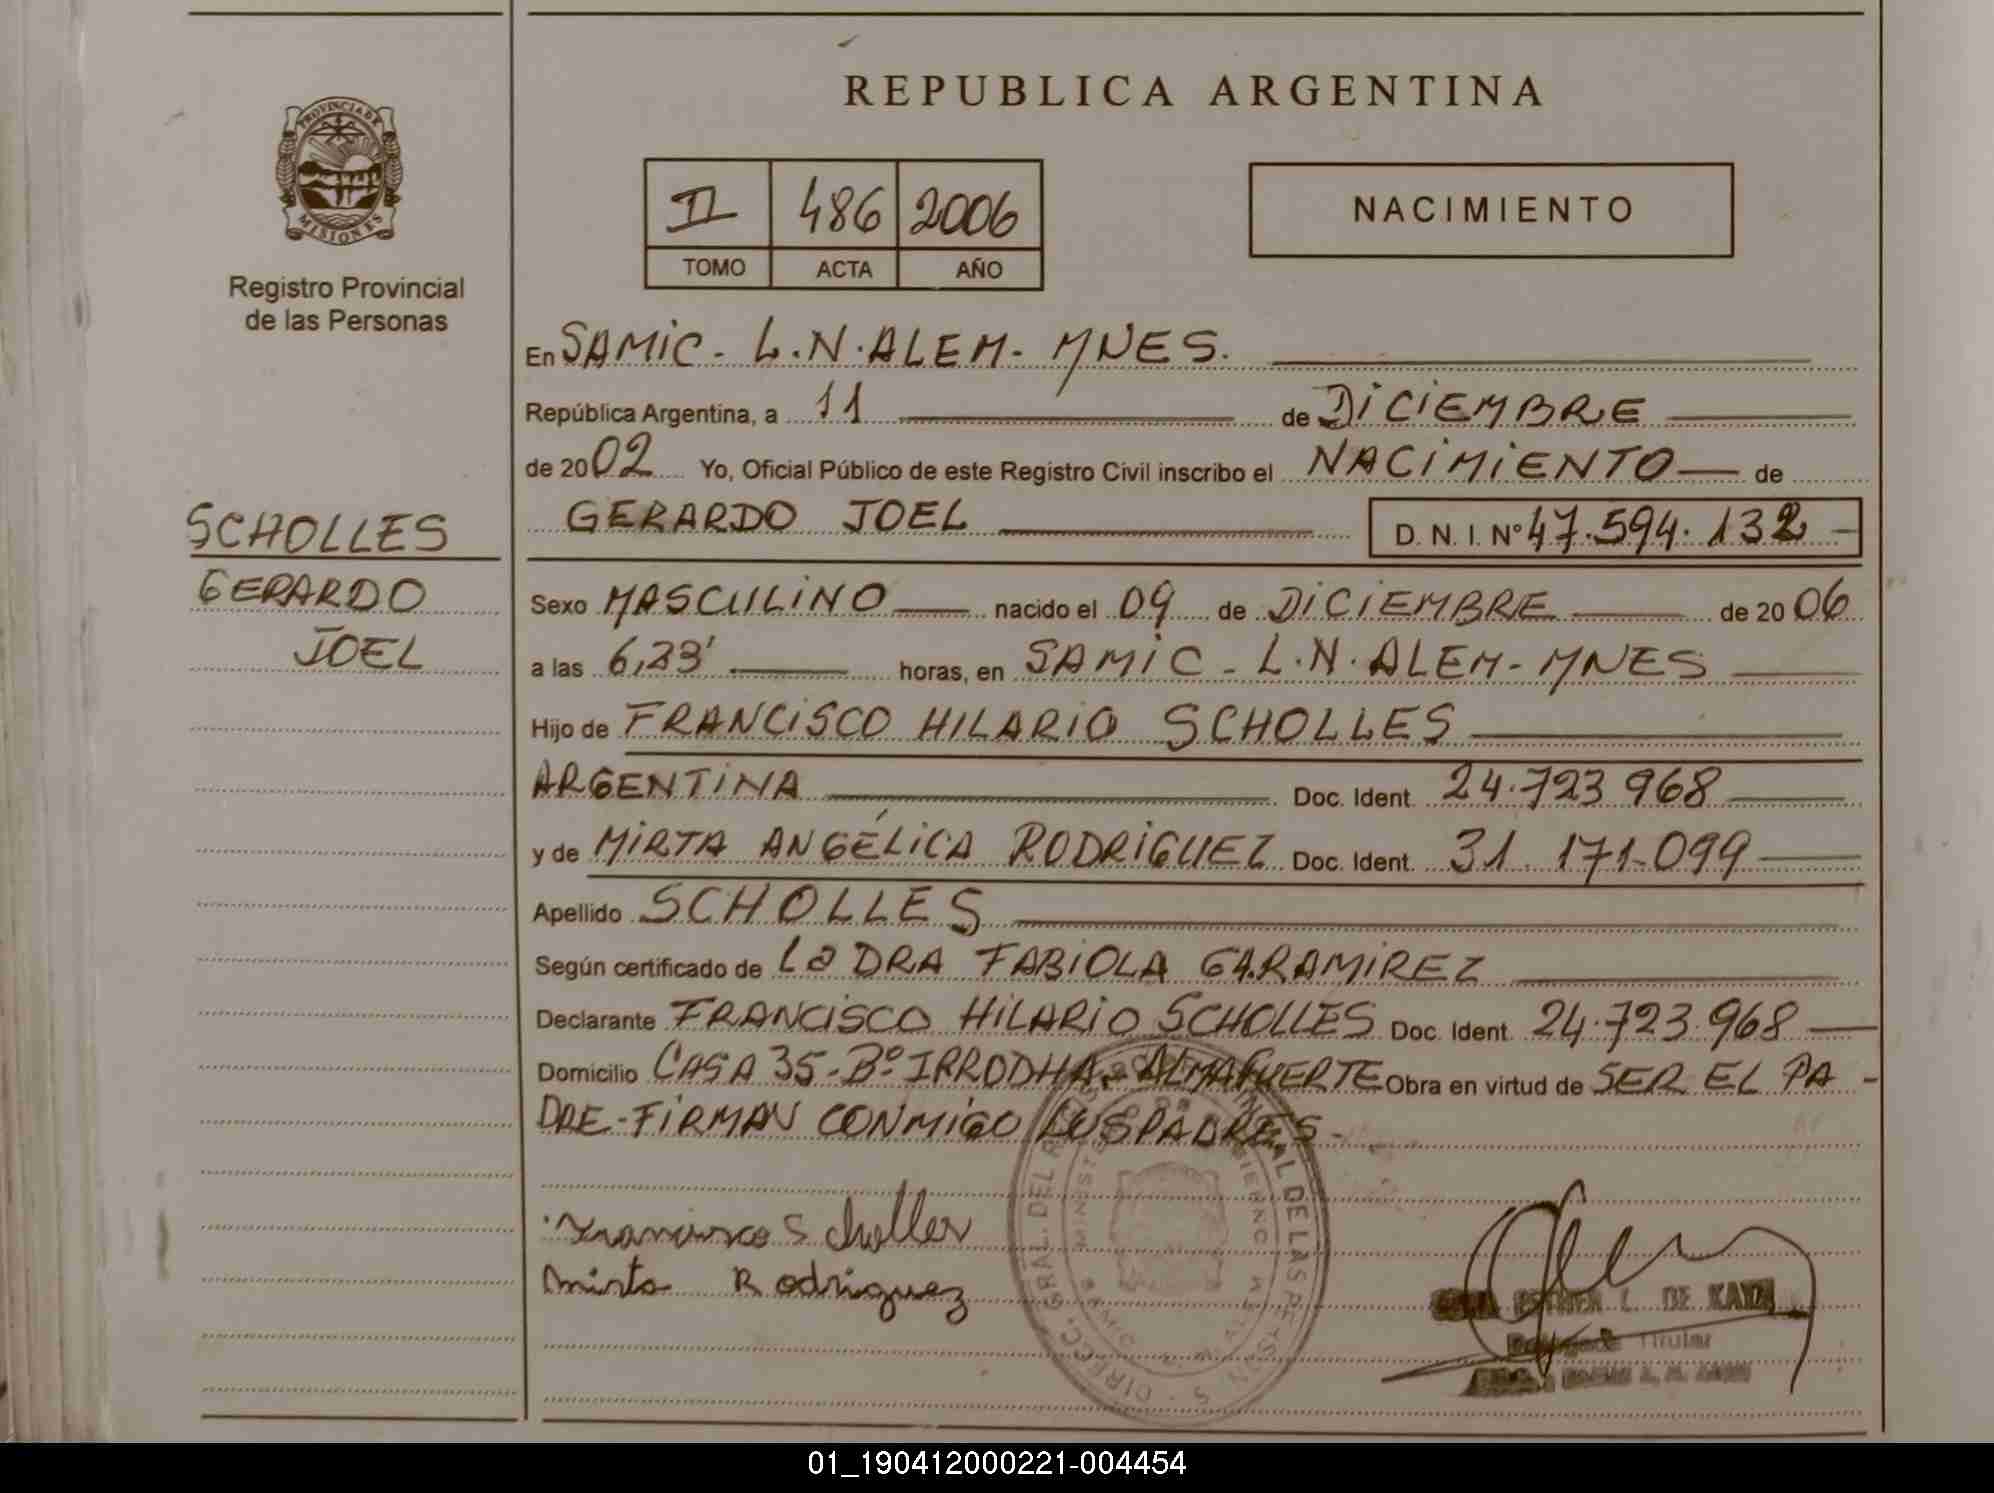 REPUBLICA ARGENTINA
PROVINCIA DE
MISIONES
Registro Provincial
de las Personas
II 486 2006
TOMO ACTA AÑO
NACIMIENTO
En SAMiC - L.N.ALEM - MNES.
República Argentina, a 11 de DiCiEMBRE
de 2002 Yo, Oficial Público de este Registro Civil inscribo el NACiMiENTO de
GERARDO JOEL D. N. I. Nº 47.594.132
SCHOLLES
GERARDO
JOEL
Sexo MASCULiNO nacido el 09 de DiCiEMBRE de 2006
a las horas, en SAMiC - L.N.ALEM - MNES
Hijo de FRANCiSCO HILARiO SCHOLLES
ARGENTiNA Doc. Ident. 24.723 968
y de MiRTA ANGÉLiCA RODRiGUEZ Doc. Ident. 31.171.099
Apellido SCHOLLES
Según certificado de La DRA FABiOLA RAMiREZ
Declarante FRANCiSCO HiLARiO SCHOLLES Doc. Ident. 24.723.968
Domicilio CASA 35 - Bº IRRODHA - ALMAFUERTE Obra en virtud de SER EL PA -
DRE - FiRMAN CONMiGO LOS PADRES -
Francisco Scholles
Mirta Rodriguez
DIRECC. GRAL. DEL DE LAS PERSONAS
ESTHER L. DE
Titular
01_190412000221-004454